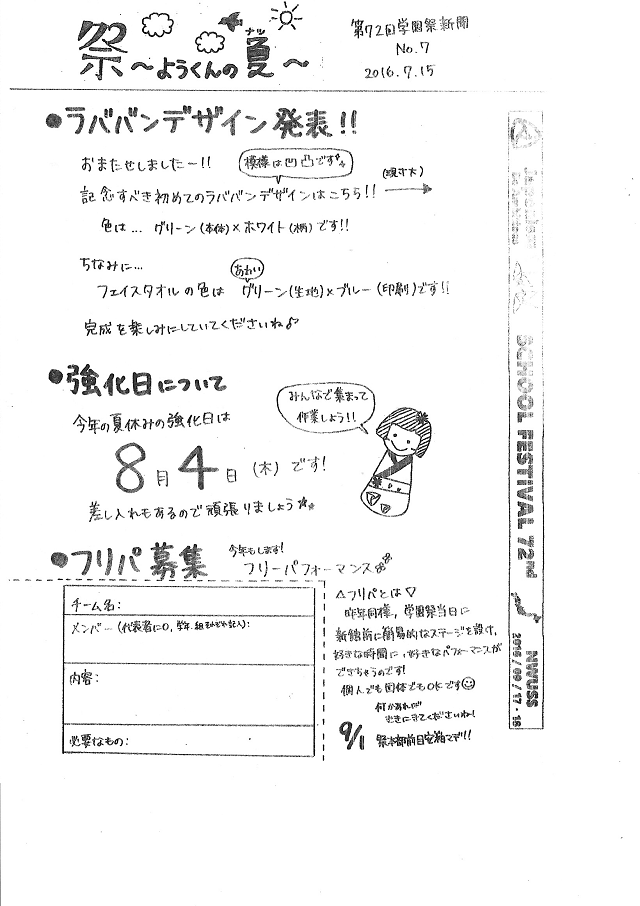 祭〜ようくんの夏〜
ナツ
第72回学園祭新聞
No.7
2016.7.15
●ラババンデザイン発表!!
おまたせしましたー!!
模様は凹凸です
記念すべき初めてのラババンデザインはこちら!!
(現寸大)
色は… グリーン(本体)×ホワイト(柄)です!!
ちなみに…
あわい
フェイスタオルの色は グリーン(生地)×ブルー(印刷)です!!
完成を楽しみにしていてくださいね♪
●強化日について
みんなで集まって
作業しよう!!
今年の夏休みの強化日は
8月4日(木)です!
差し入れもあるので頑張りましょう
●フリパ募集
今年もします!
フリーパフォーマンス
チーム名:
メンバー(代表者に○、学年、組もそれぞれ記入):
内容:
必要なもの:
△フリパとは▽
昨年同様、学園祭当日に
新館前に簡易的なステージを設け、
好きな時間に、好きなパフォーマンスが
できちゃうのです!
個人でも団体でもOKです
何かあれば
ききにきてくださいね!
9/1
SCHOOL FESTIVAL 72nd
NWUSS
2016/09/17-18